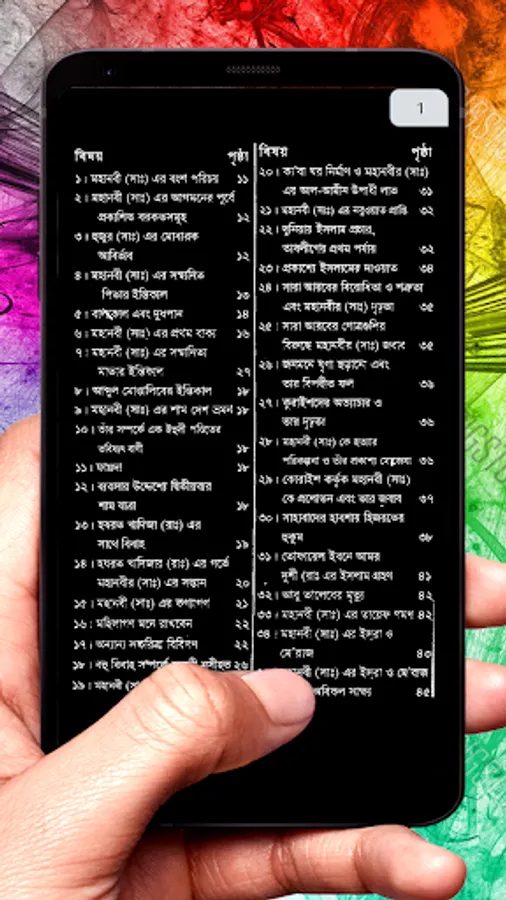 1
বিষয় পৃষ্ঠা
১। মহানবী (সাঃ) এর বংশ পরিচয় ১১
২। মহানবী (সাঃ) এর আগমনের পূর্বে
প্রকাশিত বরকতসমূহ ১২
৩। হুজুর (সাঃ) এর মোবারক
আবির্ভাব ১২
৪। মহানবী (সাঃ) এর সম্মানিত
পিতার ইন্তিকাল ১৩
৫। বাল্যকাল এবং দুধপান ১৪
৬। মহানবী (সাঃ) এর প্রথম বাক্য ১৬
৭। মহানবী (সাঃ) এর সম্মানিতা
মাতার ইন্তিকাল ২৭
৮। আব্দুল মোত্তালিবের ইন্তিকাল ১৮
৯। মহানবী (সাঃ) এর শাম দেশ ভ্রমন ১৮
১০। তাঁর সম্পর্কে এক ইহুদী পন্ডিতের
ভবিষ্যৎ বাণী ১৮
১১। ফায়দা ১৮
১২। ব্যবসার উদ্দেশ্যে দ্বিতীয়বার
শাম যাত্রা ১৮
১৩। হযরত খাদিজা (রাঃ) এর
সাথে বিবাহ ১৯
১৪। হযরত খাদিজার (রাঃ) এর গর্ভে
মহানবীর (সাঃ) এর সন্তান ২০
১৫। মহানবী (সাঃ) এর কন্যাগণ ২১
১৬। মহিলাগণ মনে রাখবেন ২২
১৭। অন্যান্য সচ্চরিত্রা বিবিগণ ২২
১৮। বহু বিবাহ সম্পর্কে হুশিয়ারী ২৬
১৯। মহানবী
২০। কা'বা ঘর নির্মাণ ও মহানবীর (সাঃ)
এর আল-আমীন উপাধী লাভ ৩১
২১। মহানবী (সাঃ) এর নবুওয়াত প্রাপ্তি ৩২
২২। দুনিয়ায় ইসলাম প্রচার,
তাবলীগের প্রথম পর্যায় ৩২
২৩। প্রকাশ্যে ইসলামের দাওয়াত ৩৪
২৪। সারা আরবের বিরোধিতা ও শত্রুতা
এবং মহানবীর (সাঃ) দৃঢ়তা ৩৫
২৫। সারা আরবের গোত্রগুলির
বিরুদ্ধে মহানবীর (সাঃ) জবাব ৩৫
২৬। জনমনে ঘৃণা ছড়ানো এবং
তার বিপরীত ফল ৩৬
২৭। কুরাইশদের অত্যাচার ও
তার দৃঢ়তা ৩৬
২৮। মহানবী (সাঃ) কে হত্যার
পরিকল্পনা ও তাঁর প্রকাশ্য মোজেযা ৩৬
২৯। কোরাইশ কর্তৃক মহানবী (সাঃ)
কে প্রলোভন এবং তার জবাব ৩৭
৩০। সাহাবাদের হাবশায় হিজরতের
হুকুম ৩৮
৩১। তোফায়েল ইবনে আমর
দুশী (রাঃ এর ইসলাম গ্রহণ ৪১
৩২। আবু তালেবের মৃত্যু ৪২
৩৩। মহানবী (সাঃ) এর তায়েফ গমণ ৪২
৩৪। মহানবী (সাঃ) এর ইসরা ও
মে'রাজ ৪৩
মহানবী (সাঃ) এর ইসরা ও মে'রাজ
অবিকল সাক্ষ্য ৪৫